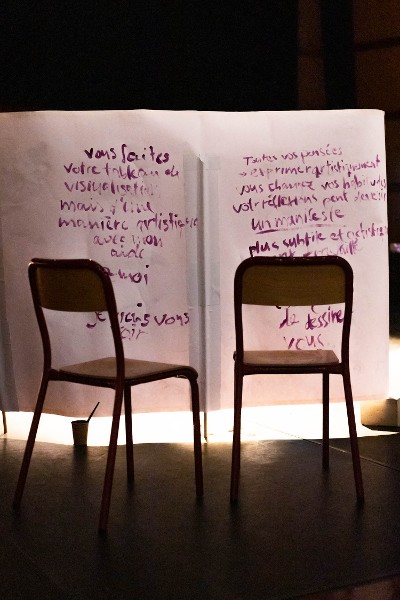 vous faites
votre tableau de
visualisation
mais d'une
manière artistique
avec mon
aide
moi
je suis vous
Toutes vos pensées
exprimer artistiquement
vous changez vos habitudes
vos réflexions peut devenir
un manifeste
plus subtile et artistique
de dessiner
vous